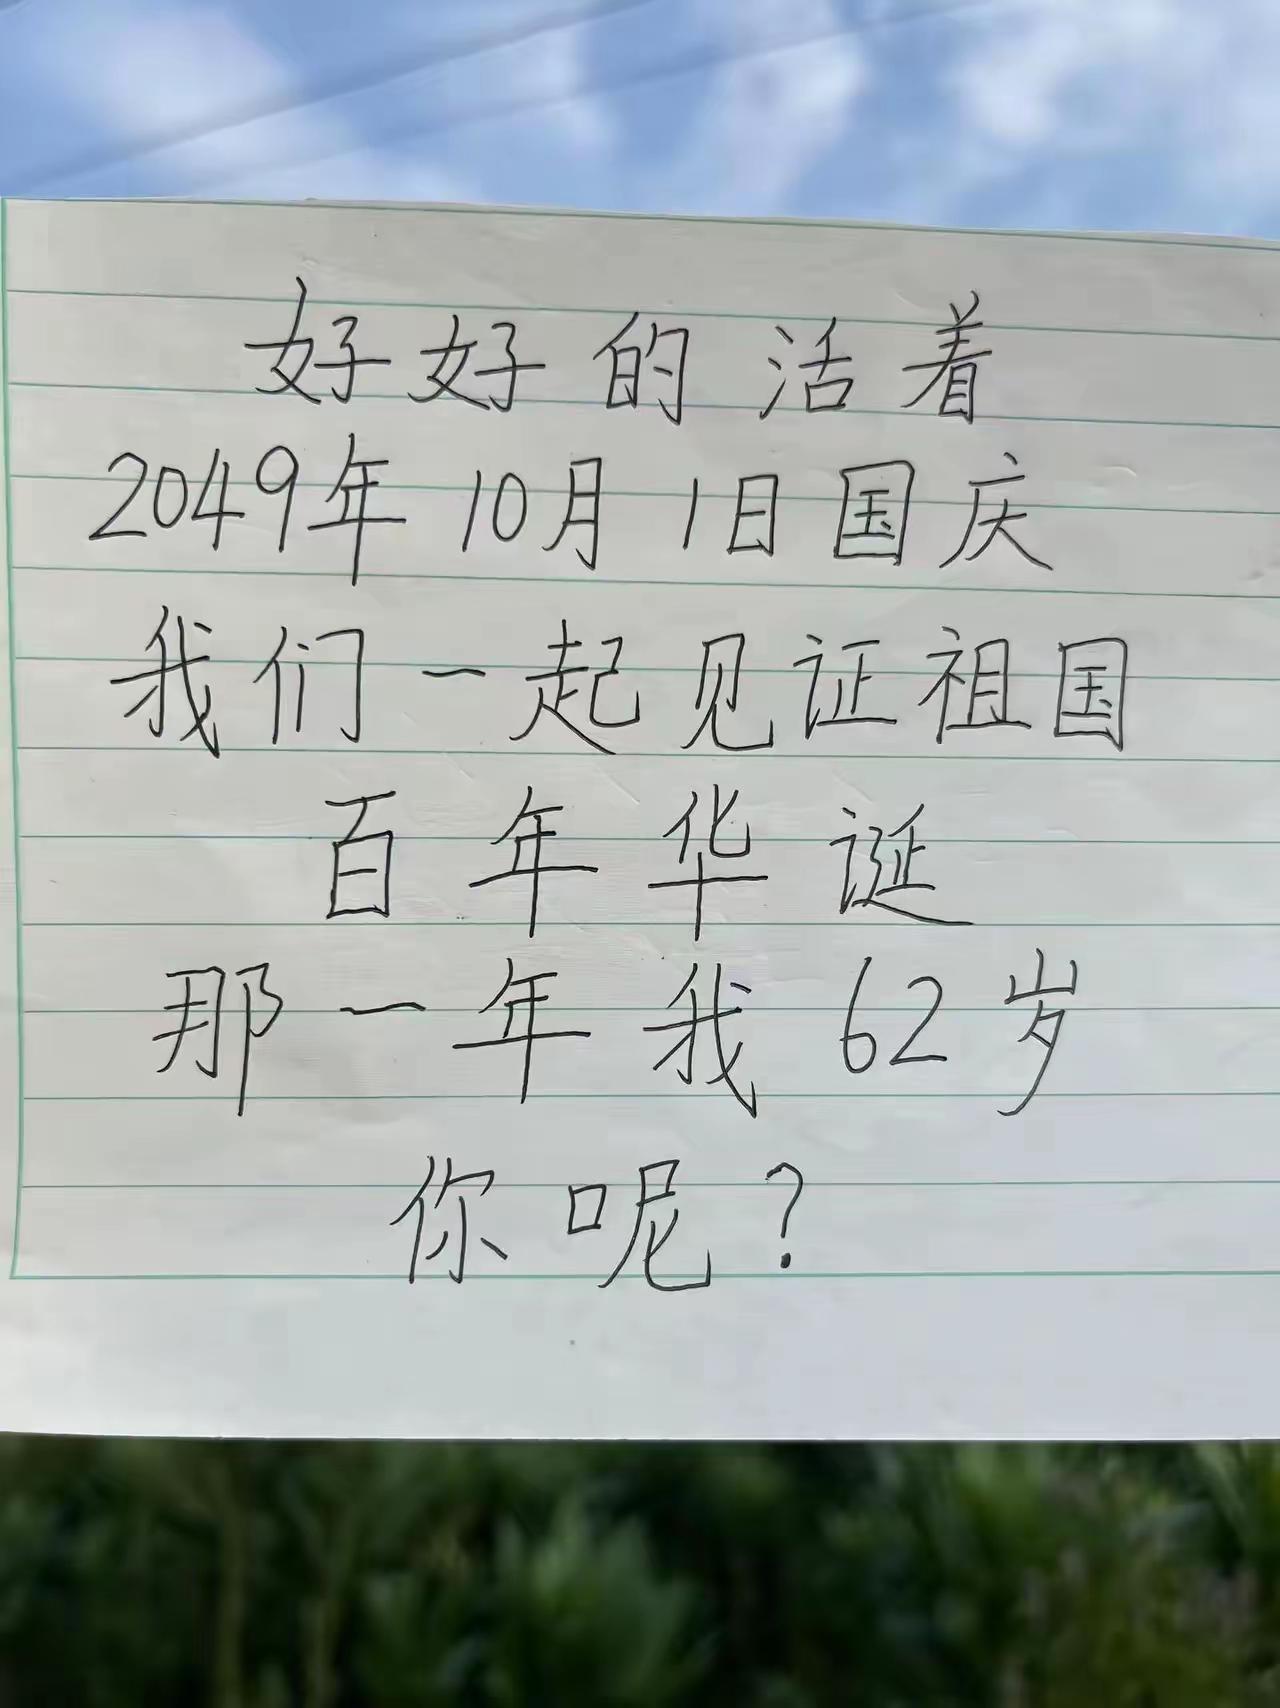 好好的活着
2049年10月1日国庆
我们一起见证祖国
百年华诞
那一年我62岁
你呢?